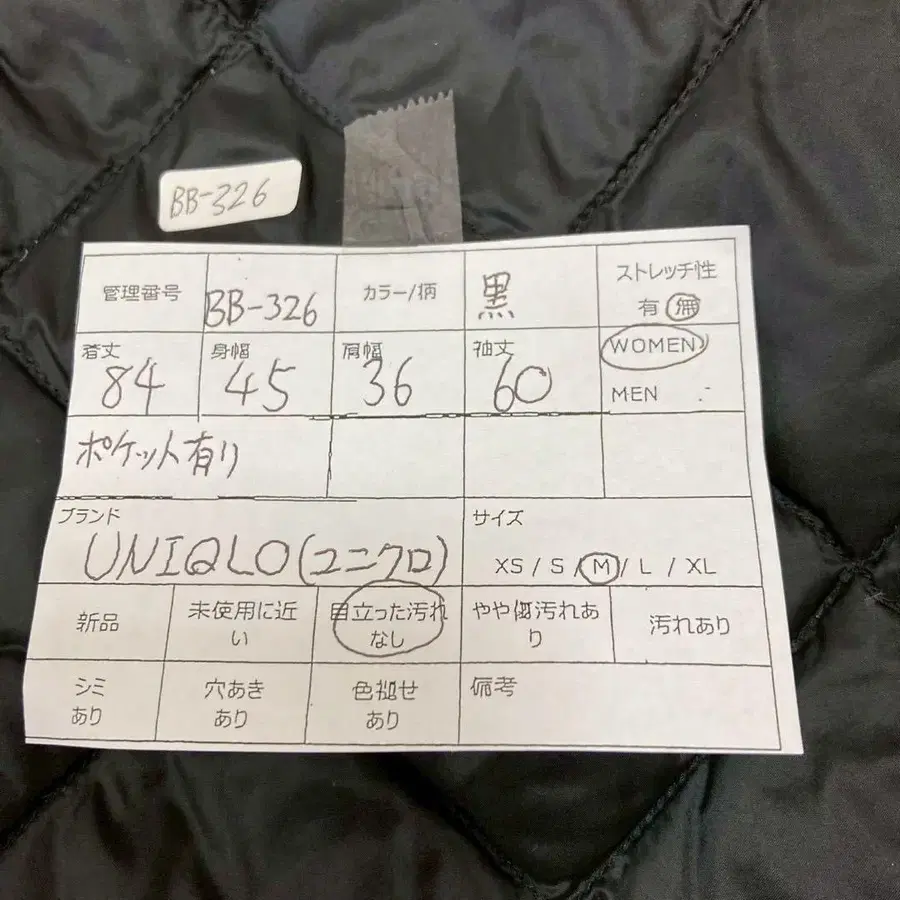 BB-326
管理番号 BB-326 カラー/柄 黒 ストレッチ性
有 無
着丈 身幅 肩幅 袖丈 WOMEN
84 45 36 60 MEN
ポケット有り
ブランド サイズ
UNIQLO(ユニクロ) XS / S / M / L / XL
新品 未使用に近い 目立った汚れなし やや傷汚れあり 汚れあり
シミあり 穴あきあり 色褪せあり 備考